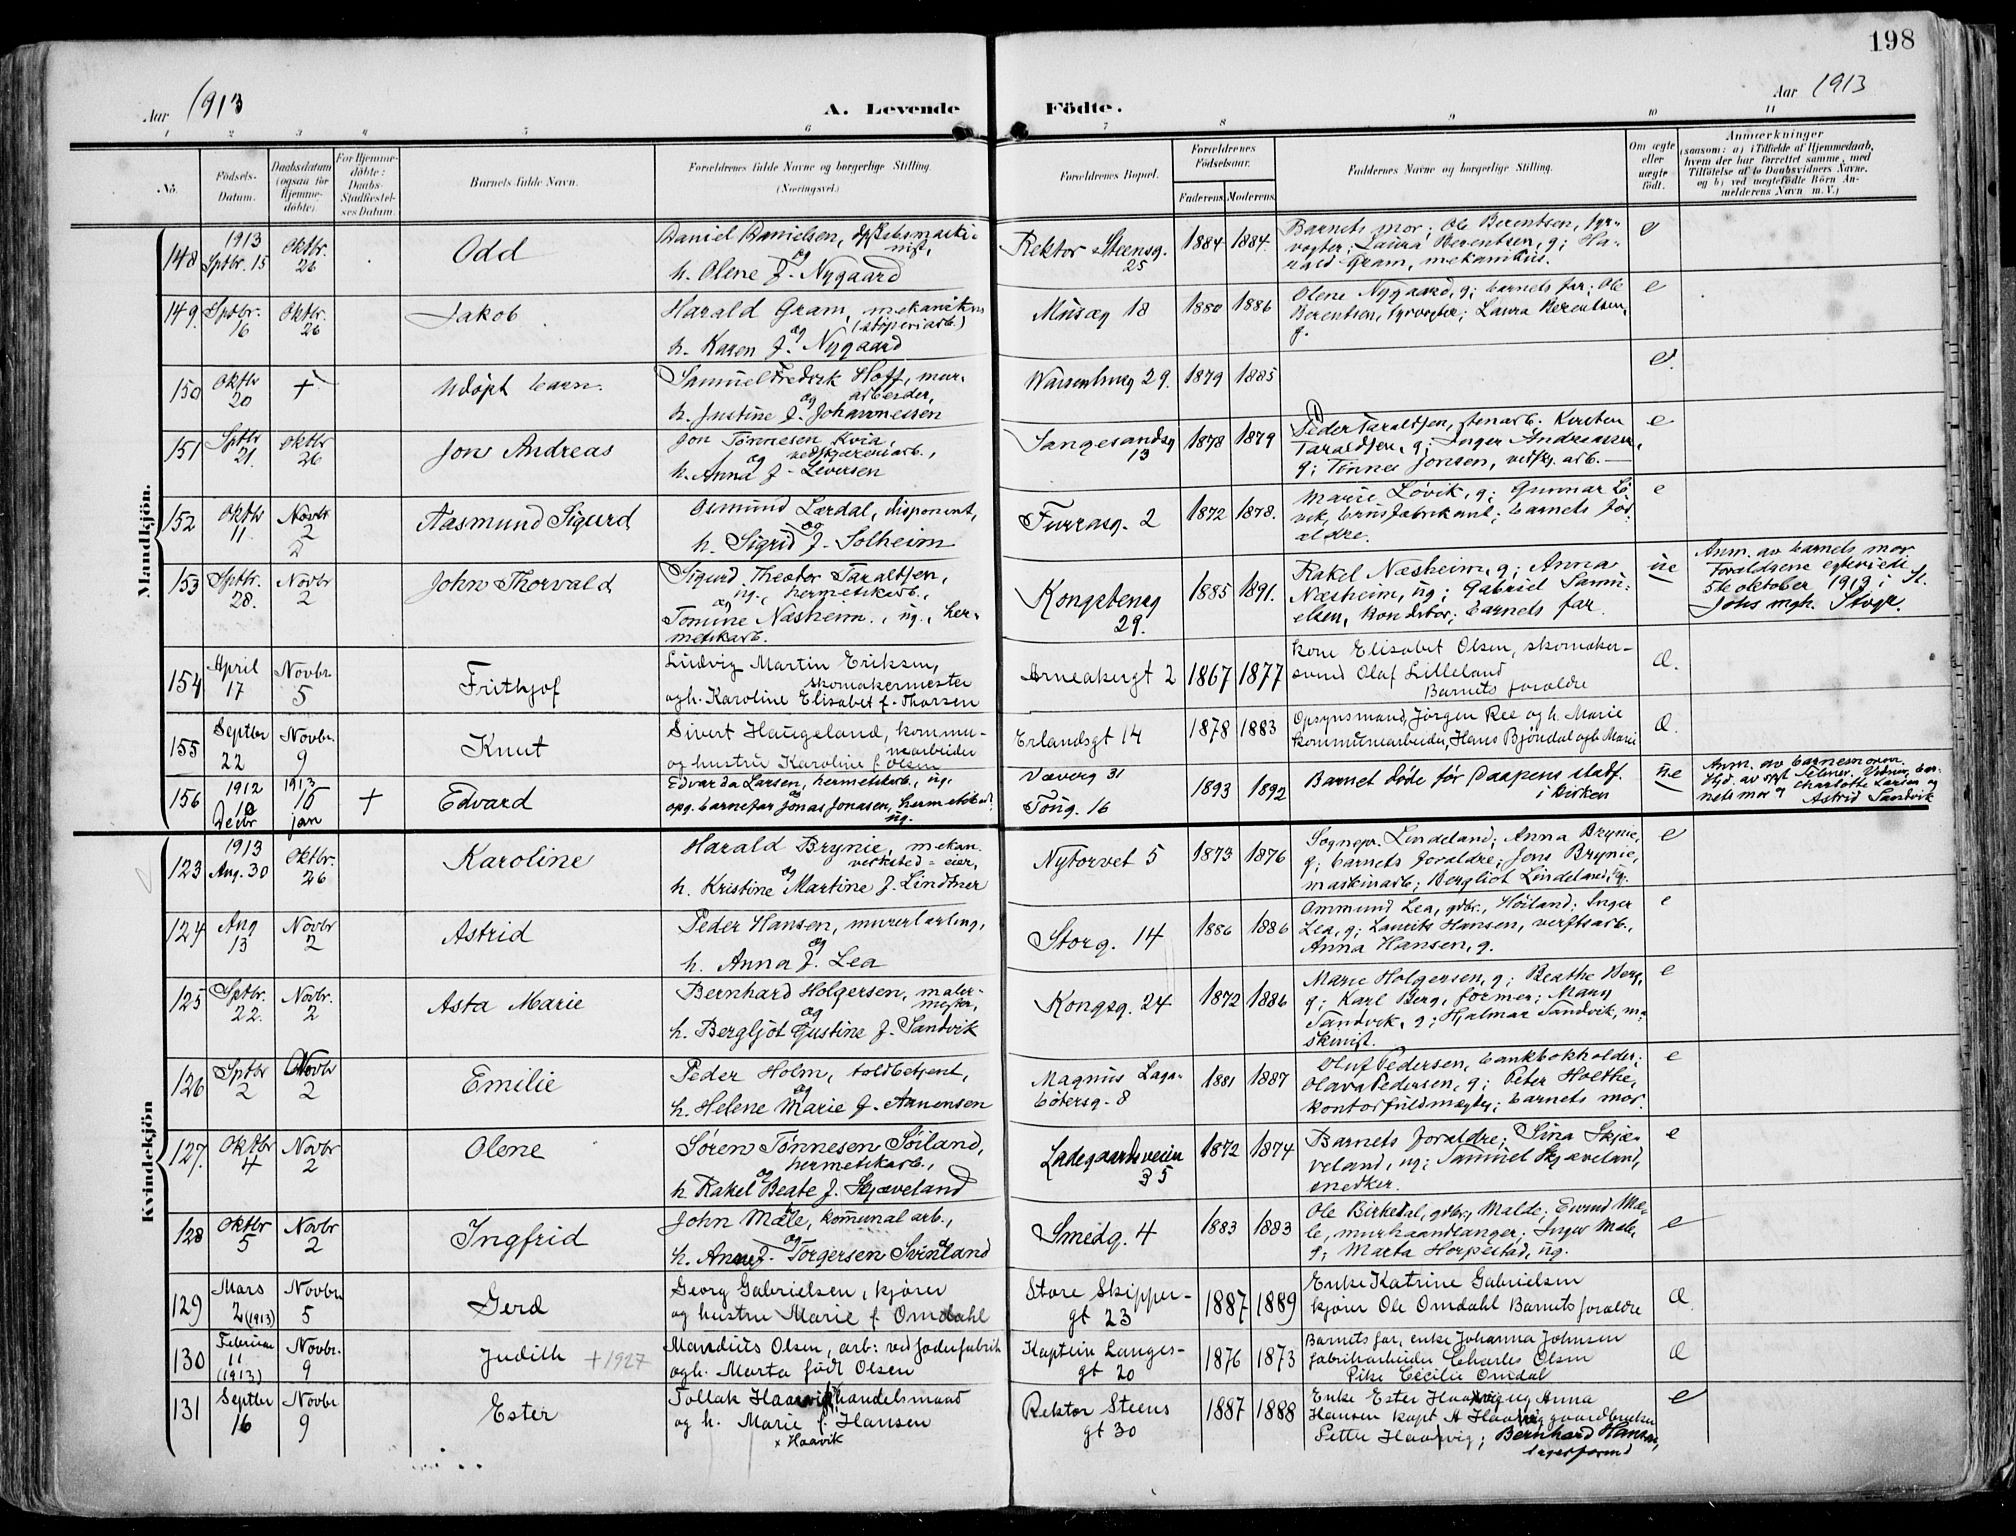 198
Aar 1913
A. Levende
Födte.
Aar 1913
1 2 3 4 5 6 7 8 9 10 11
No.
Födsels-
Datum.
Daabsdatum
(ogsaa for
Hjemme-
döbte).
For Hjemme-
döbte:
Daabs-
Stadfæstel-
ses Datum.
Barnets fulde Navn.
Forældrenes fulde Navne og borgerlige Stilling.
(Næringsvei.)
Forældrenes Bopæl.
Forældrenes
Födselsaar.
Faderens Moderens
Faddernes Navne og borgerlige Stilling.
Om ægte
eller
uægte
födt.
Anmærkninger
(saasom: a) i Tilfælde af Hjemmedaab,
hvem der har forrettet samme, med
Tilföielse af to Daabsvidners Navne,
og b) ved uægtefödte Börn An-
melderens Navn m. V.)
Mandkjön.
148 1913 Sptbr. 15 Oktbr. 26 Odd
Daniel Danielsen,
og
h. Olene f. Nygaard
Rektor Steensg. 25 1884 1884.
Barnets mor; Ole Berentsen, fyr-
vogter; Laura Berentsen, g; Ha-
rald Gram, mekanikus. e
149. Sptbr. 16 Oktbr. 26 Jakob
Harald Gram, mekanikus
(støperiarb.)
og
h. Karen f. Nygaard
Musæg 18 1880 1886
Olene Nygaard, g; barnets far; Ole
Berentsen, fyrvogter; Laura Berentsen,
g. e
150 Oktbr 20 + Udøpt barn.
Samuel Fredrik Hoff, mur-
arbeider,
og
h. Justine f. Johannessen
29. 1879 1885 e.
151 Sptbr 21. Oktbr 26 Jon Andreas
Jon Tønnesen Kvia,
og
h. Anna f. Leversen
Langesandsg 13 1878 1879
Peder Taraldsen, stenarb. Kirsten
Taraldsen, g; Inger Andreassen,
g; Tønnes Jonsen, vedskj. arb. e
152 Oktbr 11. Novbr 2 Aasmund Sigurd
Osmund Lærdal, disponent,
og
h. Sigrid f. Solheim
Furrasg. 2 1872 1878.
Marie Løvik, g; Gunnar Lø-
vik, brusfabrikant; barnets for-
ældre. e
153 Sptbr. 28. Novbr 2 John Thorvald
Sigurd Theodor Taraltsen,
ug., hermetikarb.,
og
Tomine Næsheim., ug., her-
metikarb.
Kongsteneg 29. 1885 1891.
Rakel Næsheim, g; Anna
Næsheim, ug; Gabriel Samu-
elsen, konditor; barnets far. ue
Anm. av barnets mor
Forældrene egteviede
5te oktober 1913 i St.
Johs mgh. Stvgr.
154 April 17 Novbr. 5 Frithjof
Ludvig Martin Eriksen,
skomakermester
og h. Karoline Elisabet f. Thorsen
Arneakergt 2 1867 1877
kone Elisabet Olsen, skomaker-
svend Olaf Lilleland
Barnets forældre Æ.
155 Septbr 22 Novbr. 9 Knut
Sivert Haugeland, kommu-
nearbeider
og hustru Karoline f Olsen
Erlandsgt 14 1878 1883
Opsynsmand Jørgen Ree og h. Marie
kommunearbeider, Hans Bjøndal og h Marie Æ.
156 1912 Decbr 1913 jan + Edvard
Edvarda Larsen, hermetikarb., ug.
og
opg. barnefar Jonas Jonasen, hermetikarb.
ug.
Væverg 31
Tong. 16 1893 1892
Barnet døde før daapens stadf.
i kirken ue
Anm. av barnemoren.
Astrid Sandvik
Kvindekjön
123 1913 Aug. 30 Oktbr. 26 Karoline
Harald Brynie, mekan.
verksted = eier,
og
h. Kristine Martine f. Lindtner
Nytorvet 5 1873 1876
Sognepr. Lindeland; Anna Brynie,
g; barnets forældre; Jens Brynie,
maskinarb; Bergliot Lindeland, ug. e
124 Aug 13 Novbr 2 Astrid
Peder Hansen, murerlærling,
og
h. Anna f. Lea
Storg. 14 1886 1886
Ommund Lea, gdbr., Høiland; Inger
Lea, g; Laurits Hansen, verftsarb.,
Anna Hansen, g. e
125 Sptbr. 22. Novbr. 2 Asta Marie
Bernhard Holgersen, maler-
mester,
og
h. Bergljot Gustine f. Sandvik
Kongsg. 24 1872 1886
Marie Holgersen, g; Beathe Berg,
g; Karl Berg, former; Mary
Sandvik, g; Hjalmar Sandvik, ma-
skinist. e
126 Sptbr 2 Novbr 2 Emilie
Peder Holm, toldbetjent,
og
h. Helene Marie f. Aanensen
Magnus Laga-
bøtersg. 8 1881 1887
Oluf Pedersen, bankbokholder;
Olava Pedersen, g; Peter Holthe,
kontorfuldmægtig; barnets mor. e
127. Oktbr 4 Novbr 2 Olene
Søren Tønnesen Søiland,
hermetikarb.,
og
h. Rakel Beate f. Skjæveland
Ladegaardsveien 35 1872 1874
Barnets forældre; Sina Skjæ-
veland, ug; Samuel Skjæveland,
snedker. e
128 Oktbr 5 Novbr 2 Ingfrid
John Mæle, komunal arb.,
og
h. Anne f. Torgersen Svinland
Smedg. 4 1883 1883
Ole Birkedal, gdbr., Malde; Eivind Mæ-
le, murhaandlanger; Inger Mæle,
g; Marta Horpestad, ug. e
129 Mars 2 (1913) Novbr 5 Gerd
Georg Gabrielsen, kjører
og hustru Marie f Omdahl
Store Skipper-
gt 23 1887 1889
Enke Katrine Gabrielsen
kjører Ole Omdahl Barnets forældre Æ.
130 Februar 11 (1913) Novbr. 9 Judith +1927
Mandius Olsen, arb: ved Jøderfabrik
og h. Marta født Olsen
Kaptein Langes-
gt 20 1876 1873
Barnets far, enke Johanna Johnsen
fabrikarbeider Charles Olsen
Pike Cecilie Omdal Æ
131 Septbr 16 Novbr 9 Ester
Tollak Haavik, handelsmand
og h. Marie f. Hansen
x Haavik
Rektor Steens
gt 30 1887 1888
Enke Ester Haavig, Anna
Hansen kapt A Haavig gaardbruker
Petter Haavig; Bernhard Hansen,
lagerformd e